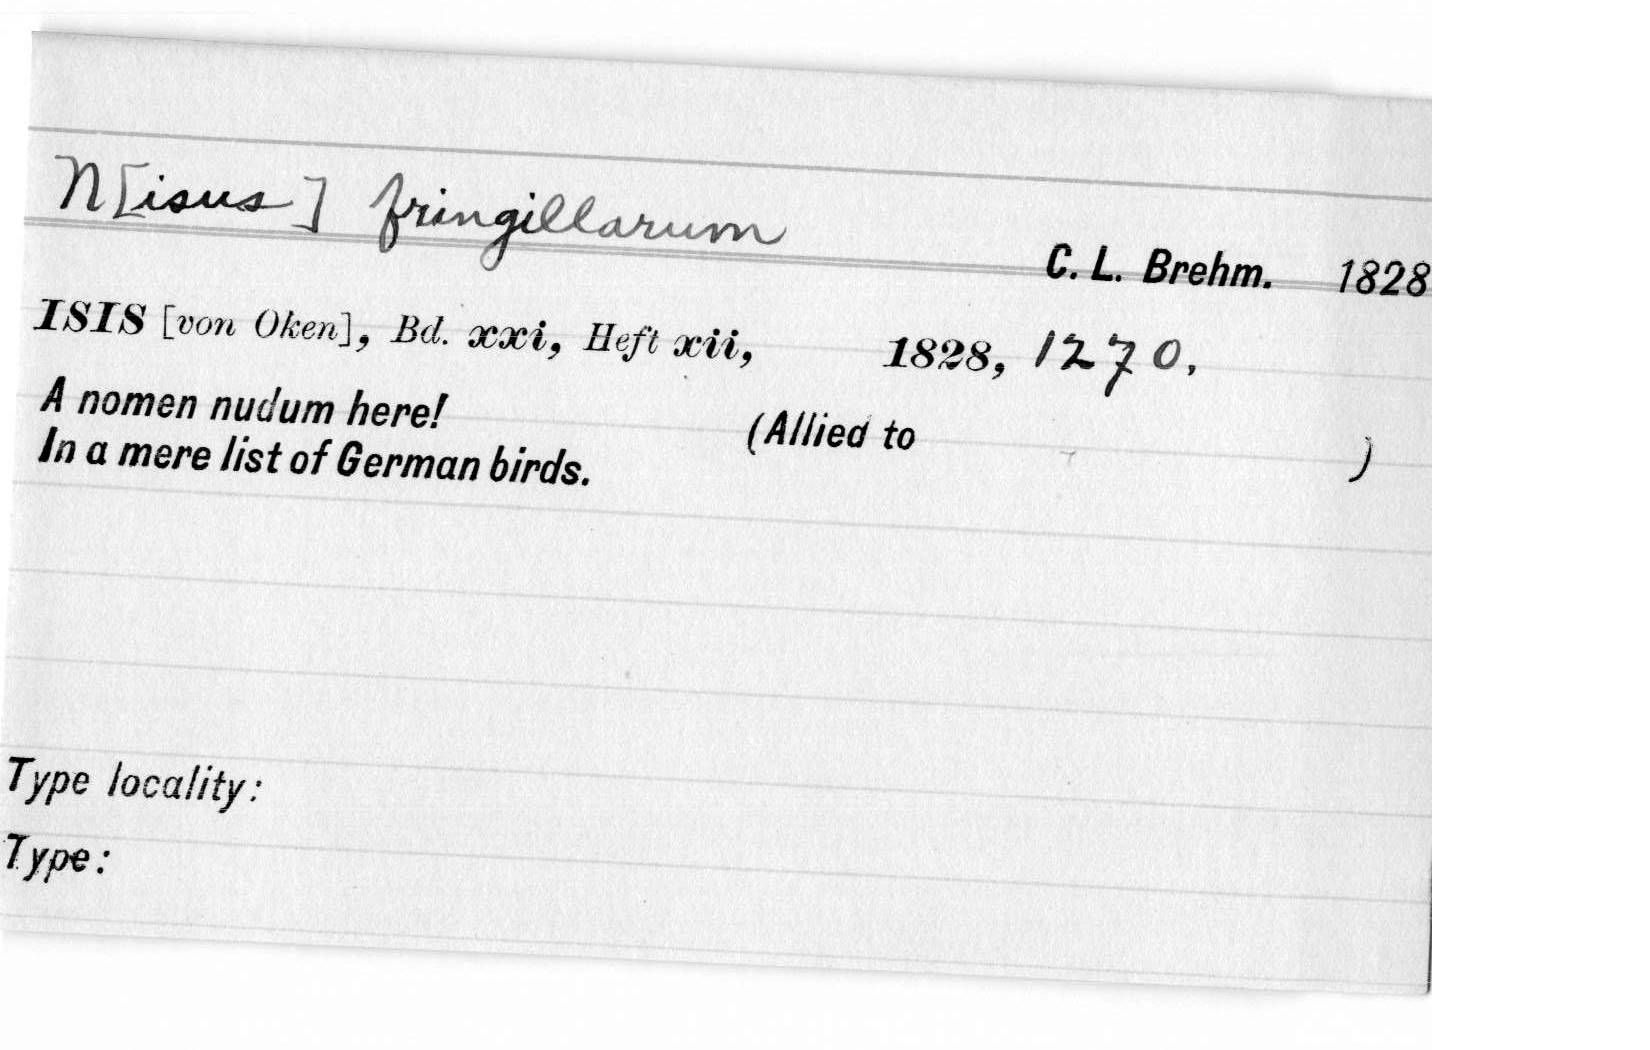 N[isus] fringillarum
C. L. Brehm. 1828
ISIS [von Oken], Bd. xxi, Heft xii, 1828, 1270.
A nomen nudum here! (Allied to )
In a mere list of German birds.
Type locality:
Type: